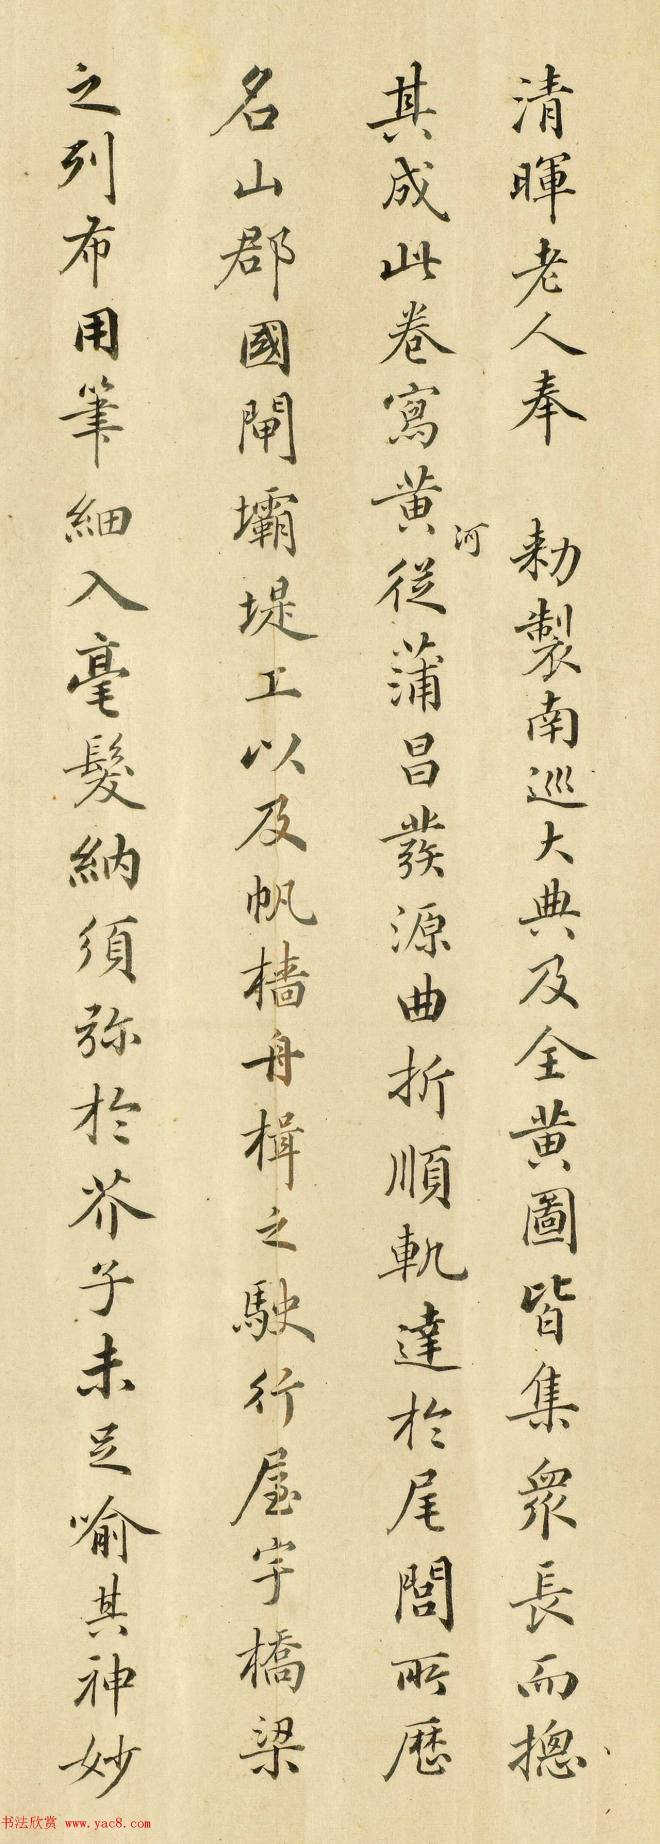 清暉老人奉　勅製南巡大典及全黄圖皆集衆長而摠
其成此卷寫黄河從蒲昌發源曲折順軌達於尾閭所歴
名山郡國閘壩堤工以及帆檣舟楫之駛行屋宇橋梁
之列布用筆細入毫髮納須弥於芥子未足喻其神妙
书法欣赏 www.yac8.com